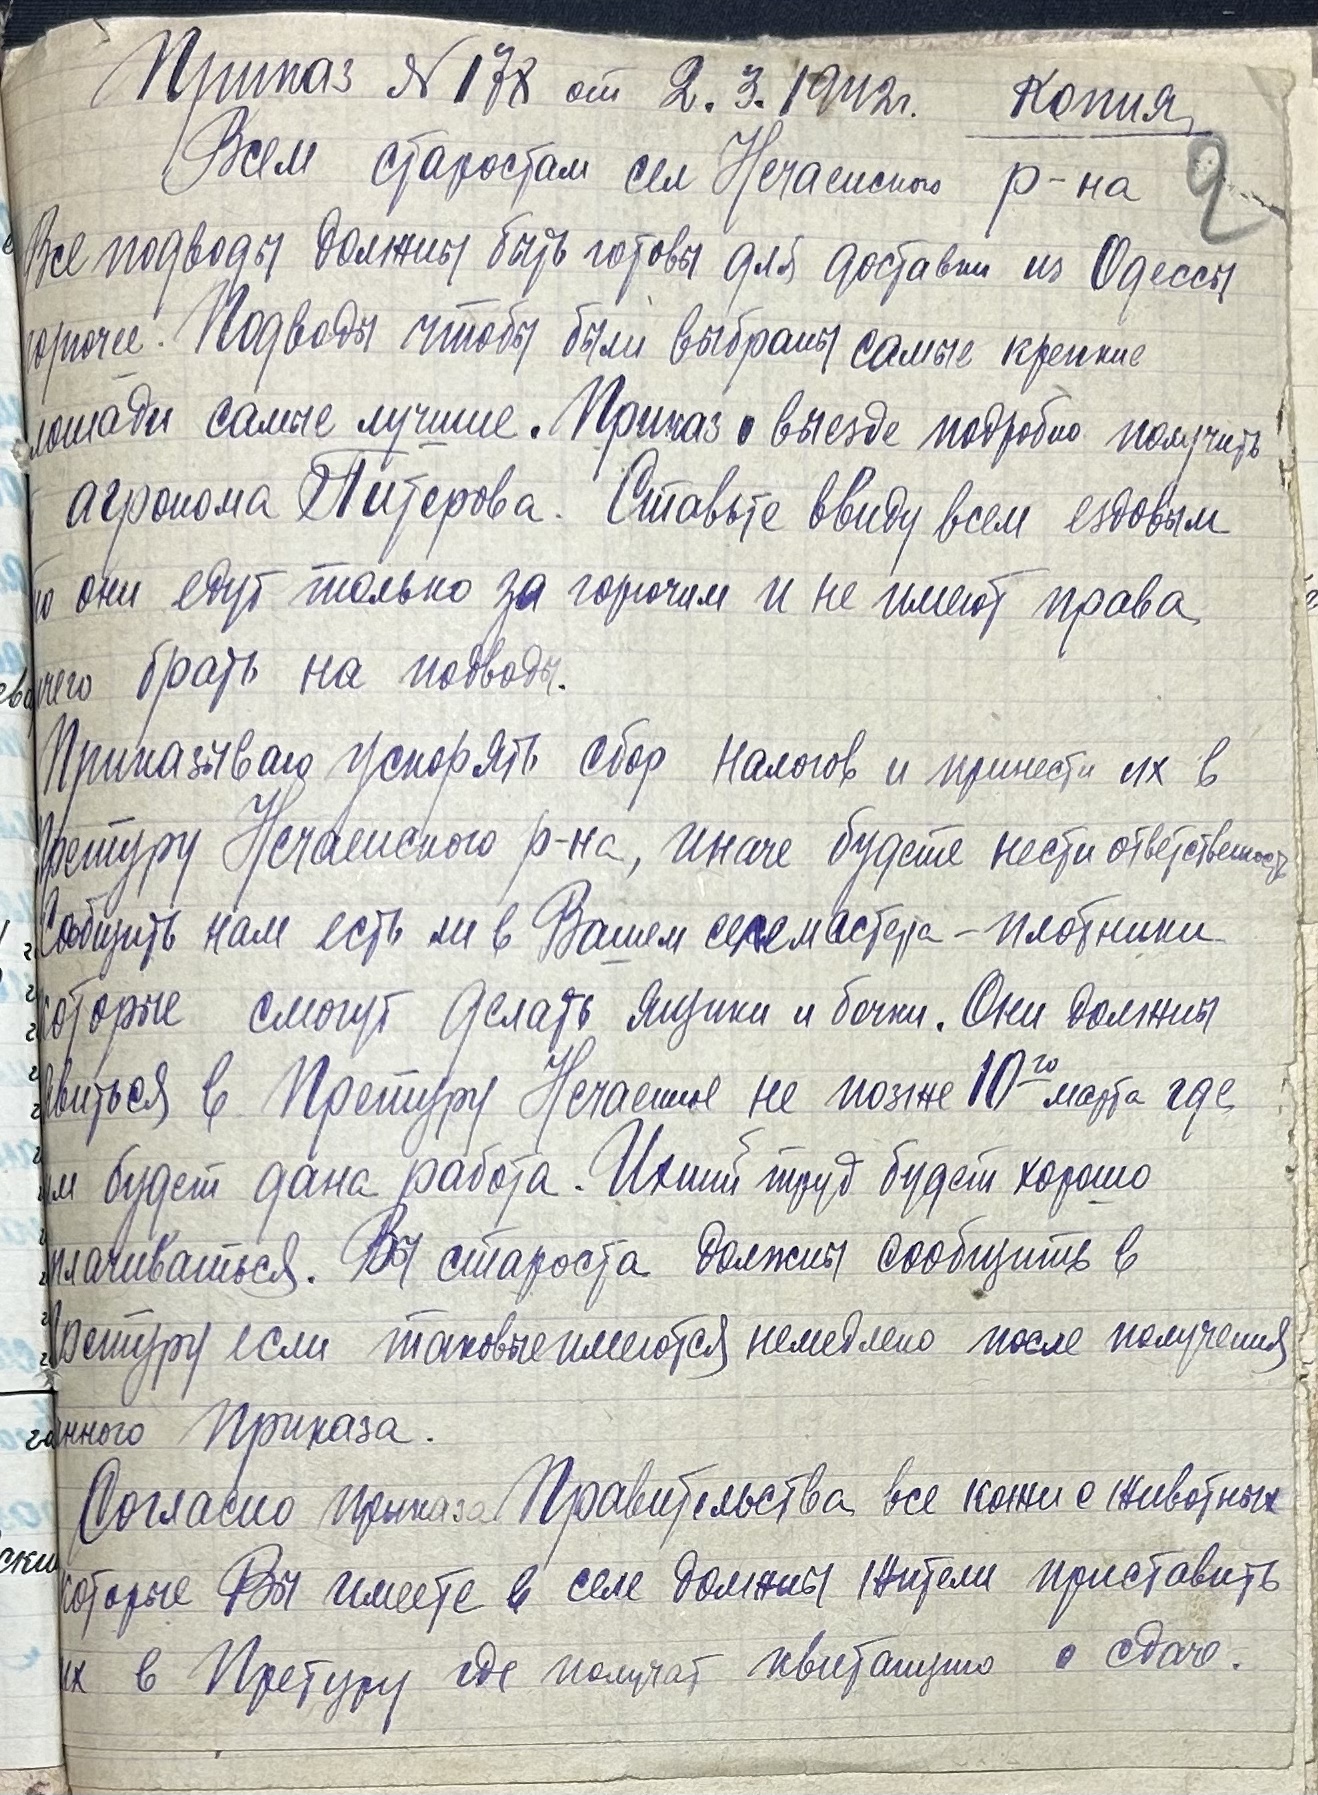 Приказ №178 от 2.3.1942г. Копия
2
Всем старостам сел Нечаенского р-на
Все подводы должны быть готовы для доставки из Одессы
горючее. Подводы чтобы были выбраны самые крепкие
лошади самые лучшие. Приказ о выезде подробно получить
агронома Питерова. Ставьте ввиду всем ездовым
то они едут только за горючим и не имеют права
ичего брать на подводы.
Приказываю ускорять сбор налогов и принести их в
Претуру Нечаенского р-на, иначе будете нести ответственость
Сообщить нам есть ли в Вашем селе мастера - плотники
которые смогут делать ящики и бочки. Они должны
явиться в Претуру Нечаенное не позже 10го марта где
им будет дана работа. Ихний труд будет хорошо
плачиваться. Вы староста должны сообщить в
Претуру если таковые имеются немедлено после получения
анного Приказа.
Согласно приказа Правительства все кожи с животных
которые Вы имеете в селе должны жители приставить
их в Претуру где получат квитанцию о сдаче.